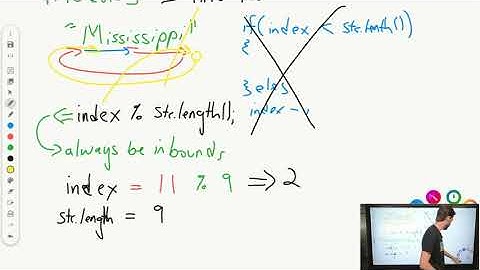 "Mississippi"
if(index < str.length())
{
} else {
index -
<= index % str.length();
always be inbounds
index = 11 % 9 => 2
str.length = 9